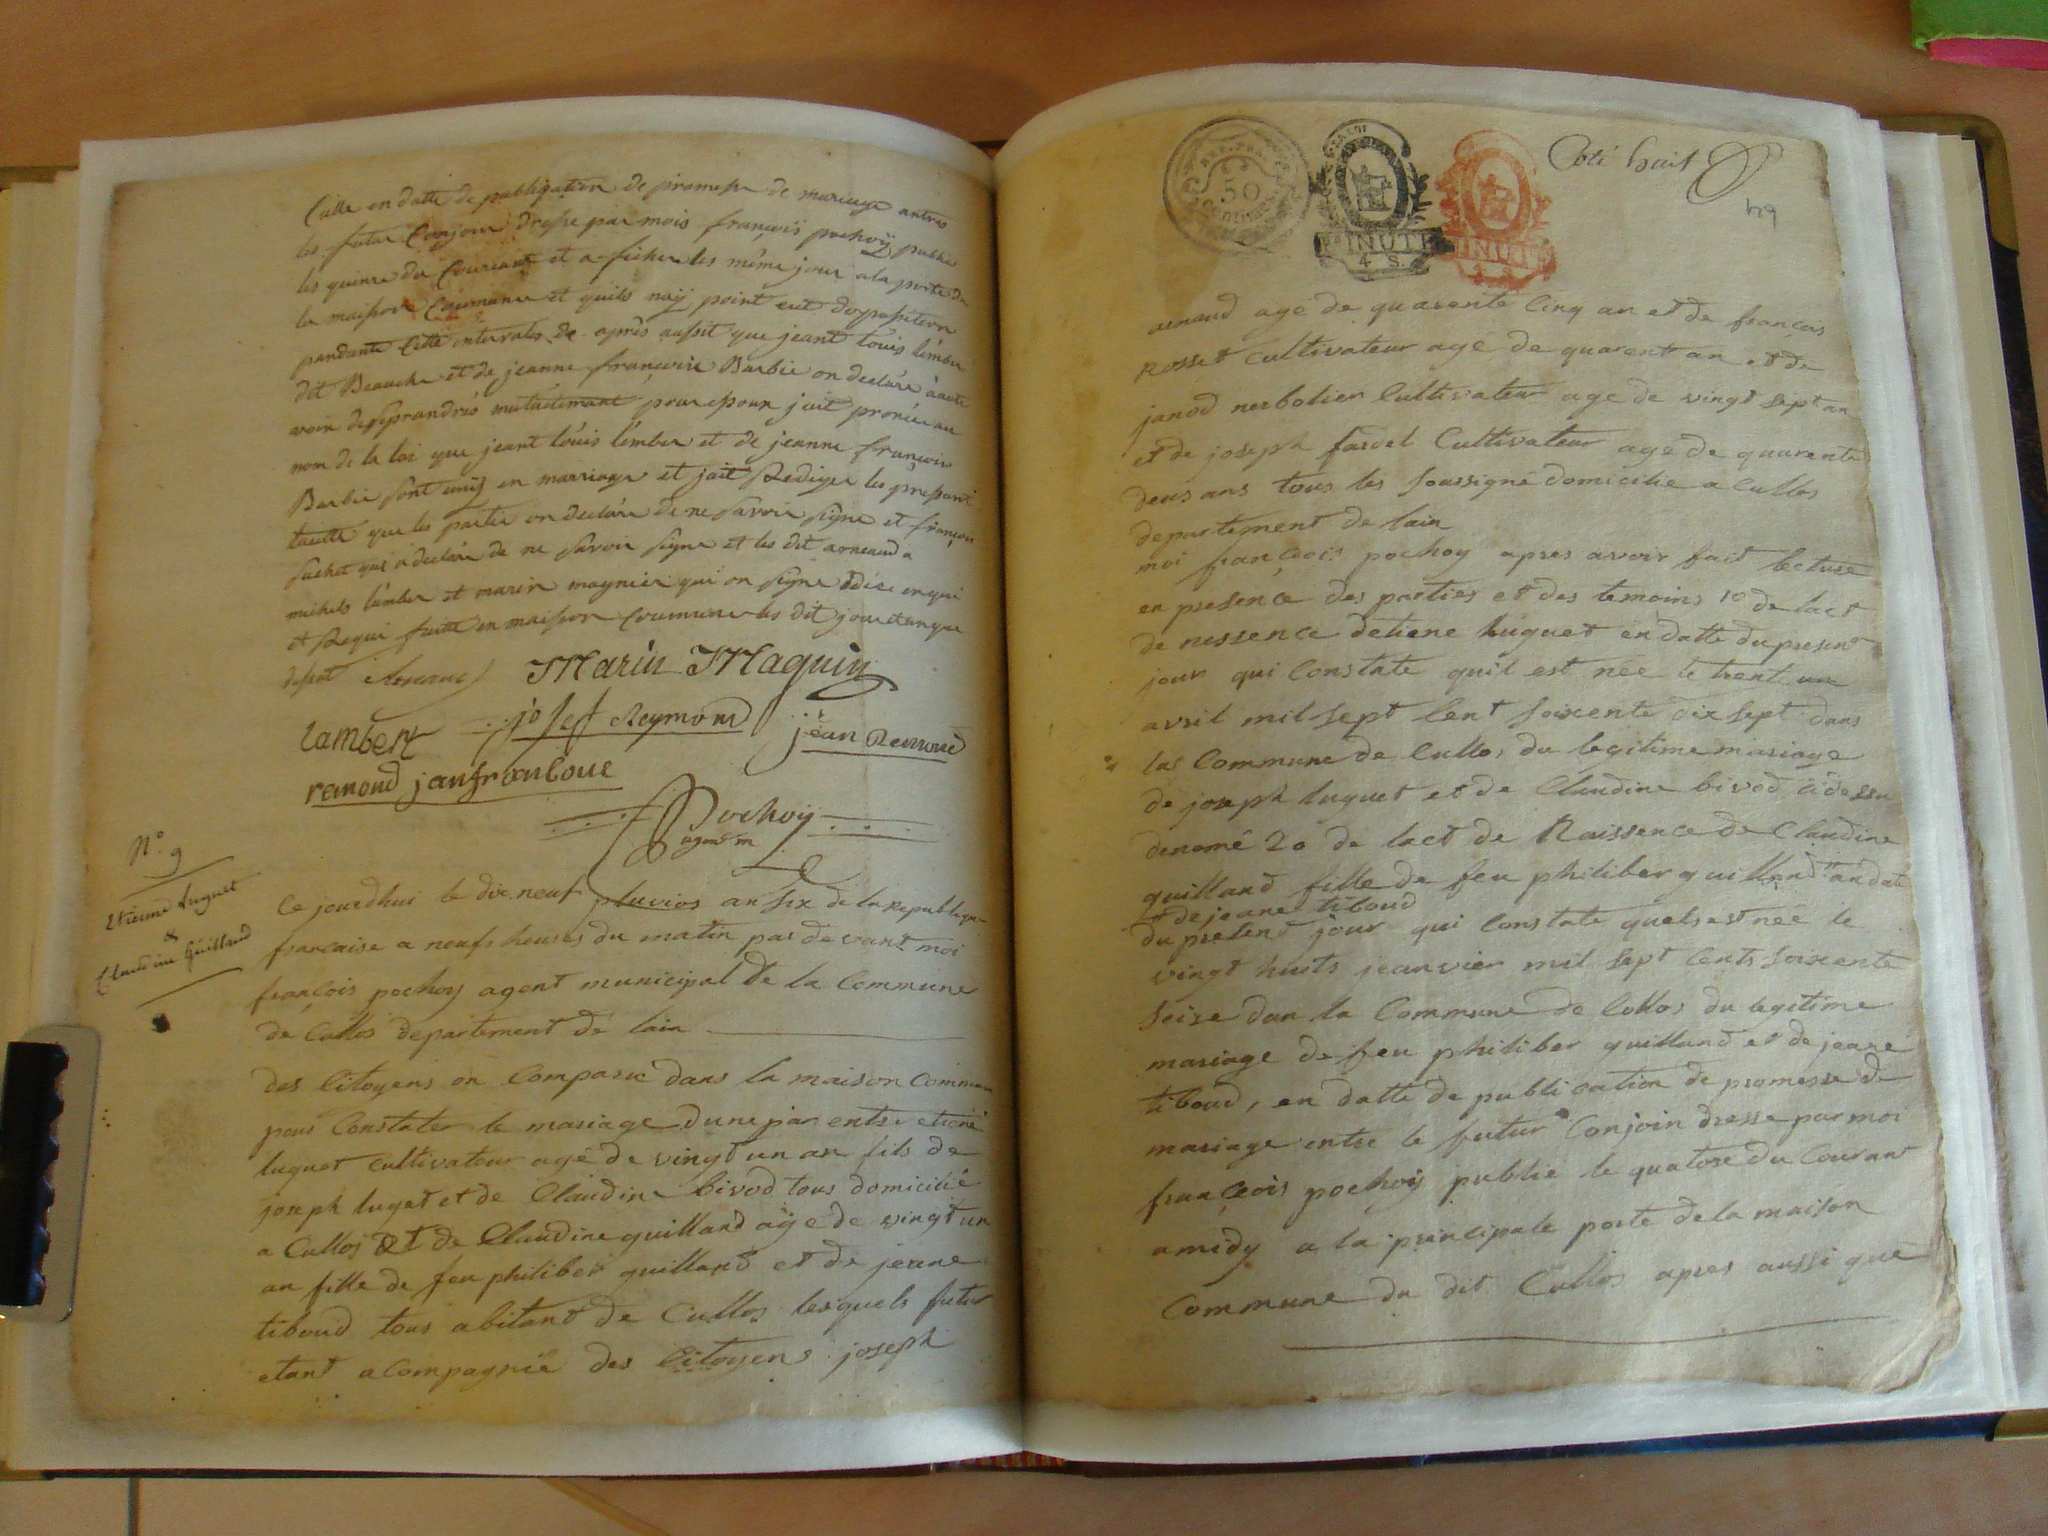 Celle en datte de publiquation de promesse de mariage antres
les futur Conjoin dresse par mois françois pochoy publié
les quinze du Courcant et a ficher les même jour a la porte de
la maison Coumune et quils naÿ point eut doposition
pandante Cette intervales de après aussit que jeant louis lember
dit Beauche et de jeanne françoise Barbie on declare à aute
voix de se prandres mutuitemant pour Epoux jait pronée au
nom de la loi que jeant louis lember et de jeanne françoise
Barbie sont unis en marriage et jait Rediger les present
que les partie on declare de ne savoir signe et françois
Suchet qui a declare de ne savoir signe et les dit arneaud a
michels lember et marin magnier qui on signe
et Requi faitte en maison Coumune les dit jour et an que
desut Arneaud Marin Maquin
lambert josef Reymond jean Remond
remond jan franloue
Pochoy
agent m
N.° 9
Etienne luguet
&
Claudine Guilland
Ce jourdhui le dix neuf pluvios an six de la republique
francaise a neufs heures du matin par devant moi
françois pochoy agent municipal de la Commune
de Cullos departement de lain
des Citoyens on Comparu dans la maison Commune
pour Constater le mariage dune par entre etiené
luguet cultivateur agé de vingt un an fils de
joseph luget et de Claudine bivod tous domicilié
a Cullos Et de Claudine guilland aÿe de vingt un
an fille de feu philiber guilland et de jeane
tiboud tous abitant de Cullos lesquels futur
etant acompagnié des Citoyens joseph
Coté huit
arnaud agé de quarente Cinq an et de françois
rosset Cultivateur agé de quarent an et de
janod nerbolier Cultivateur agé de vingt sept an
et de joseph fardel Cultivateur agé de quarente
deus ans tous les soussigné domicilie a Cullos
departement de lain
moi françois pochoy apres avoir fait lecture
en presence des parties et des temoins 1o de lact
de nessence detiene luguet en datte du present
jour qui Constate quil est née le trent un
avril mil sept Cent soixente dix sept dans
las Commune de Cullos du legitime mariage
de joseph luguet et de Claudine bivod cidessu
denomé 2o de lact de Naissence de Claudine
guilland fille de feu philiber guilland an date
et de jeane tiboud
du present jour qui Constate quels est née le
vingt huits jeanvier mil sept Cents soixente
seise dan la Commune de Collos du legitime
mariage de feu philiber guilland et de jeane
tiboud, en datte de publication de promesse de
mariage entre le futur Conjoin dresse par moi
françois pochoÿ publie le quatorse du Courant
a midy a la principale porte de la maison
Commune du dit Cullos apres aussi que
REP. FRA.
50
CENTIMES
LA LOI
MINUTE
4 S.
MINUTE